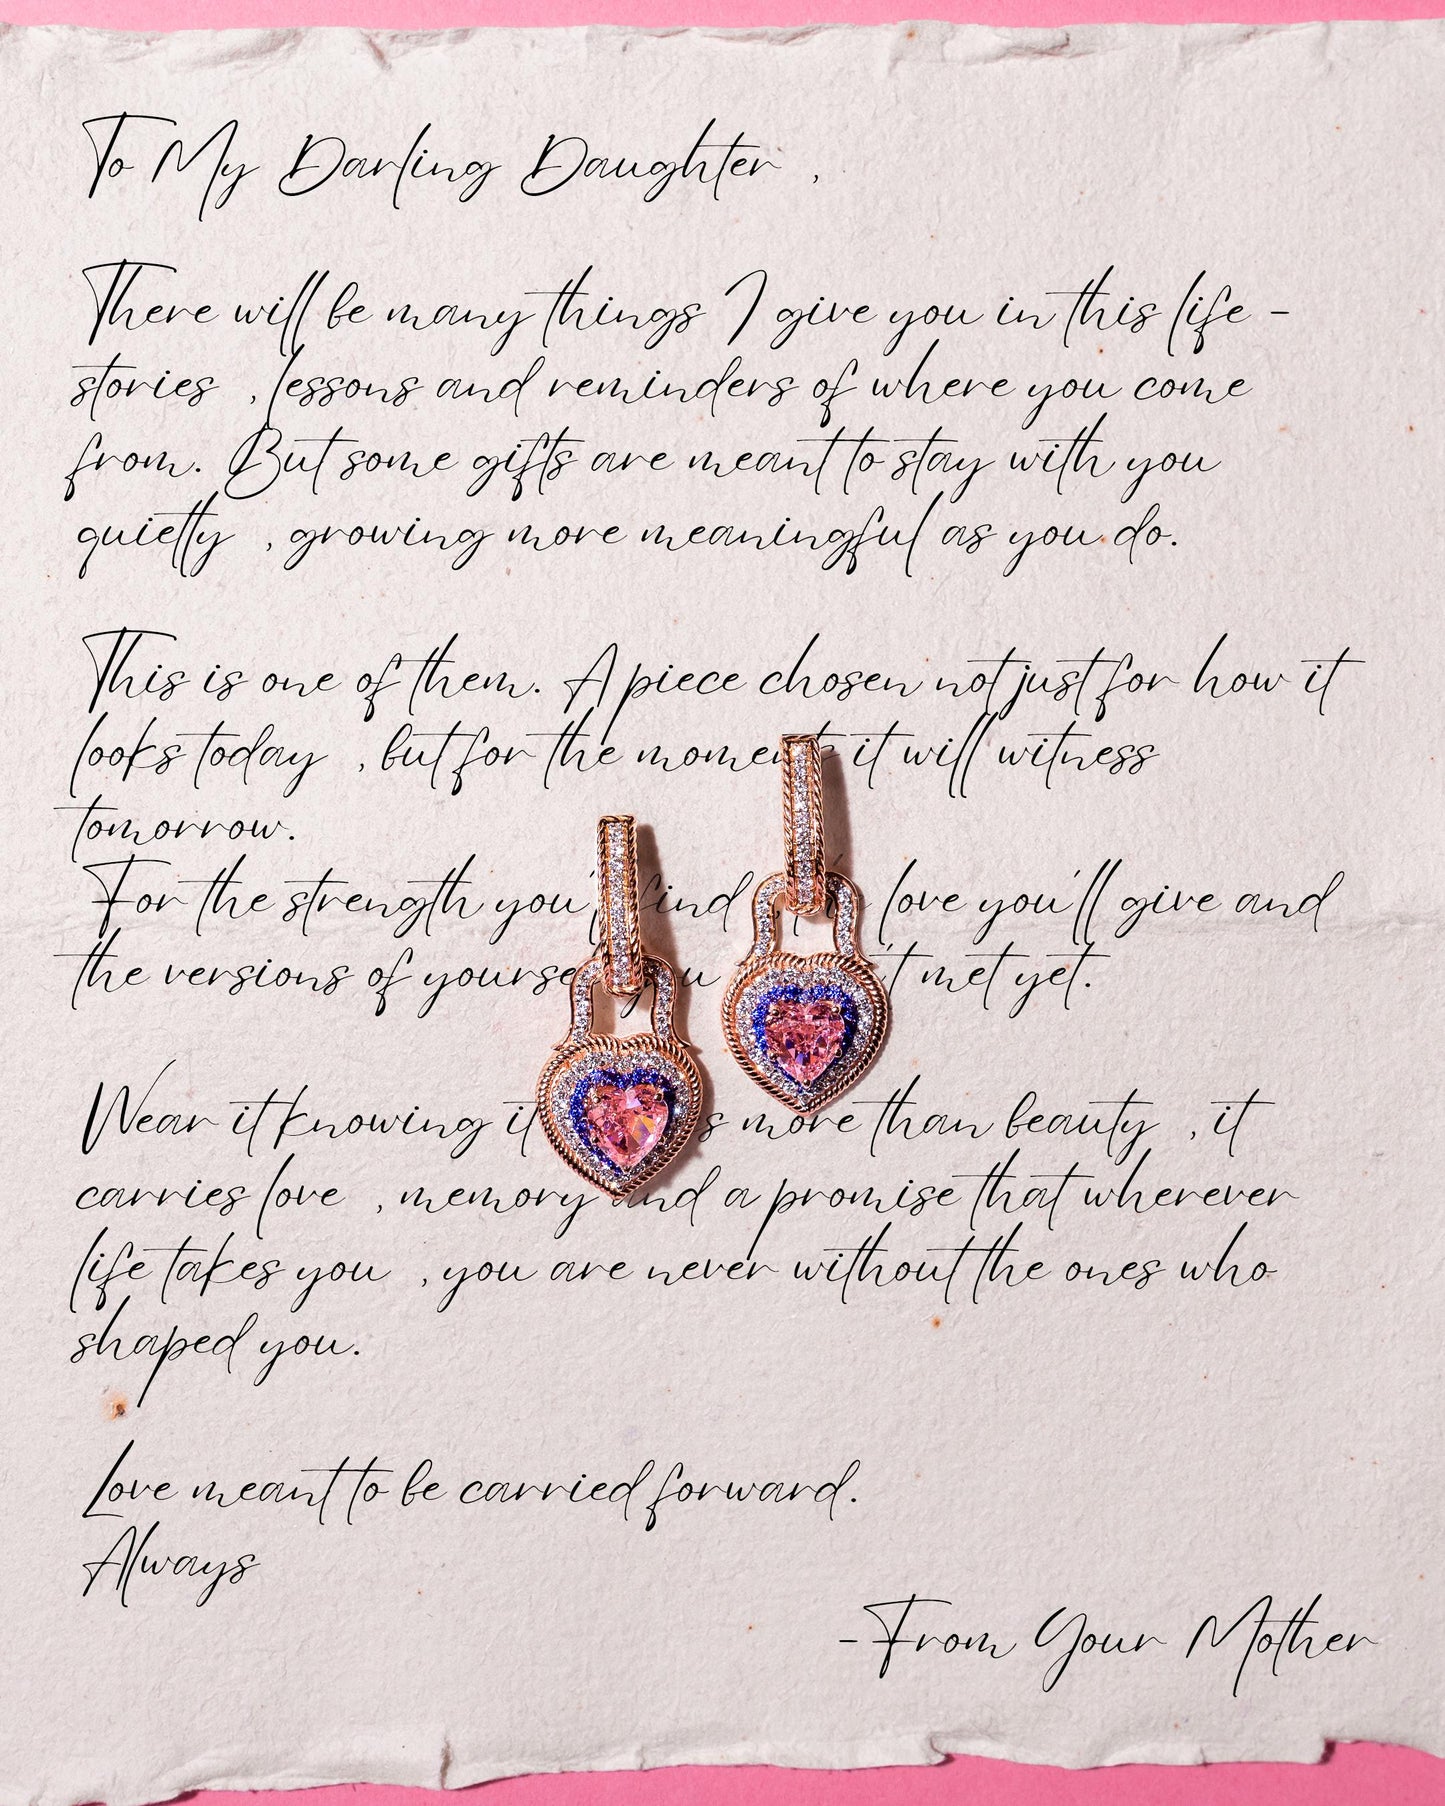 To My Darling Daughter ,
There will be many things I give you in this life -
stories , lessons and reminders of where you come
from. But some gifts are meant to stay with you
quietly , growing more meaningful as you do.
This is one of them. A piece chosen not just for how it
looks today , but for the moments it will witness
tomorrow.
For the strength you'll find , the love you'll give and
the versions of yourself you haven't met yet.
Wear it knowing it holds more than beauty , it
carries love , memory and a promise that wherever
life takes you , you are never without the ones who
shaped you.
Love meant to be carried forward.
Always
-From Your Mother